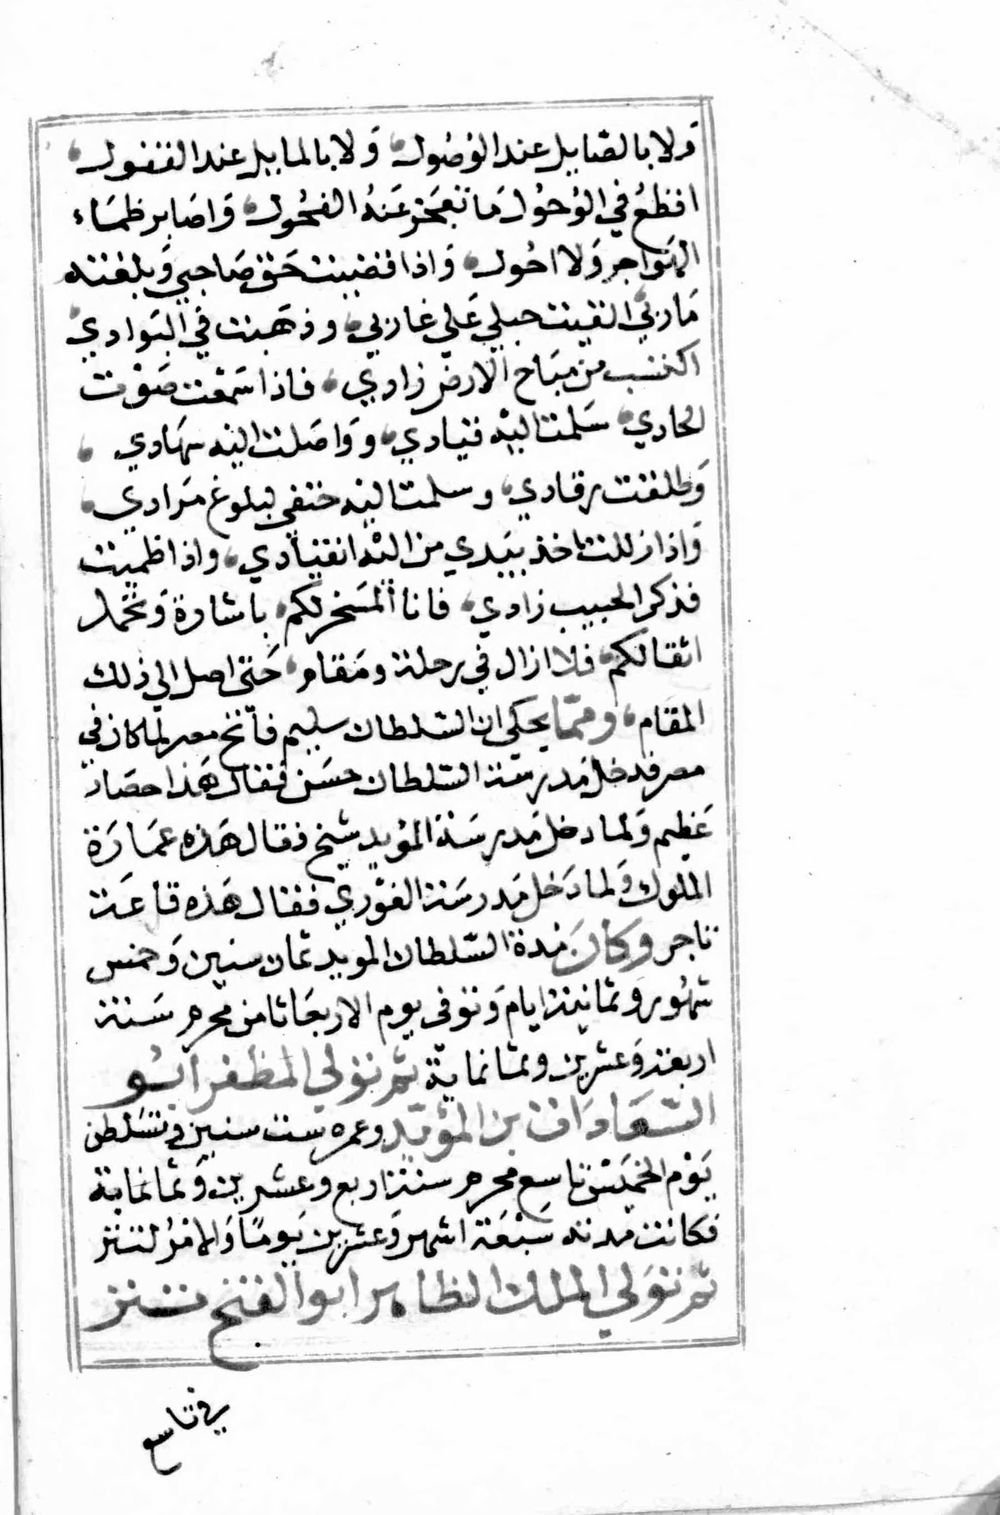 ولا بالصايل عند الوصول، ولا بالمايل عند القفول،
اقطع في الوحول ما تعجز عنه الفحول، واصابر ظماء
الهواجر ولا احول، واذا قضيت حق صاحبي وبلغته
مآربي القيت حبلي علي غاربي، وذهبت في البوادي
اكتسب من مباح الارض زادي، فاذا سمعت صوت
الحادي، سلمت اليه قيادي، وواصلت اليه سهادي،
وطلقت رقادي، وسلمت اليه حتفي لبلوغ مرادي،
واذا زللت تاخذ بيدي من اليه انقيادي، واذا ظميت
فذكر الحبيب زادي، فانا المسخر لكم، باشارة وتحمل
اثقالكم، فلا ازال في رحلة ومقام، حتى اصل الي ذلك
المقام، ومما يحكي ان السلطان سليم فاتح مصر لما كان في
مصر فدخل مدرسة السلطان حسن فقال هذا حصار
عظيم ولما دخل مدرسة المؤيد شيخ فقال هذه عمارة
الملوك ولما دخل مدرسة الغوري فقال هذه قاعة
تاجر وكان مدة السلطان المويد ثمان سنين وخمس
شهور وثمانية ايام وتوفى يوم الاربعا ثامن محرم سنة
اربعة وعشرين وثمانماية ثم تولي المظفر ابو
السعادات بن المؤيد وعمره ست سنين وتسلطن
يوم الخميس تاسع محرم سنة اربع وعشرين وثمانماية
فكانت مدته سبعة اشهر وعشرين يوما والامر لتتر
ثم تولي الملك الظاهر ابو الفتح تتر
في تاسع